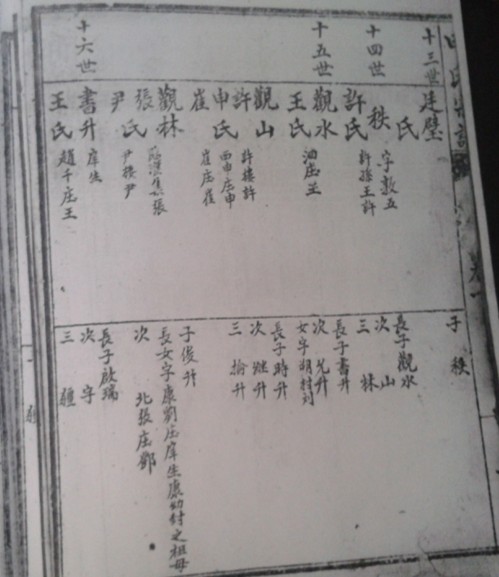 十三世
廷璧
氏
十四世
秩 字敘五
許氏 許樓王許
十五世
觀水
王氏
觀山
許 許樓許
申氏 西申庄申
崔 崔庄崔
觀林
張 集張
氏
尹 尹樓尹
十六世
書升 庠生
王氏 趙千庄王
子 秩
長子觀水
次 山
三 林
長子書升
次允升
女字胡村刘
長子時升
次 升
三 掄升
子俊升
長女字康劉庄庠生康幼村之祖母
次 北張庄鄧
長子啟瑞
次 字
三